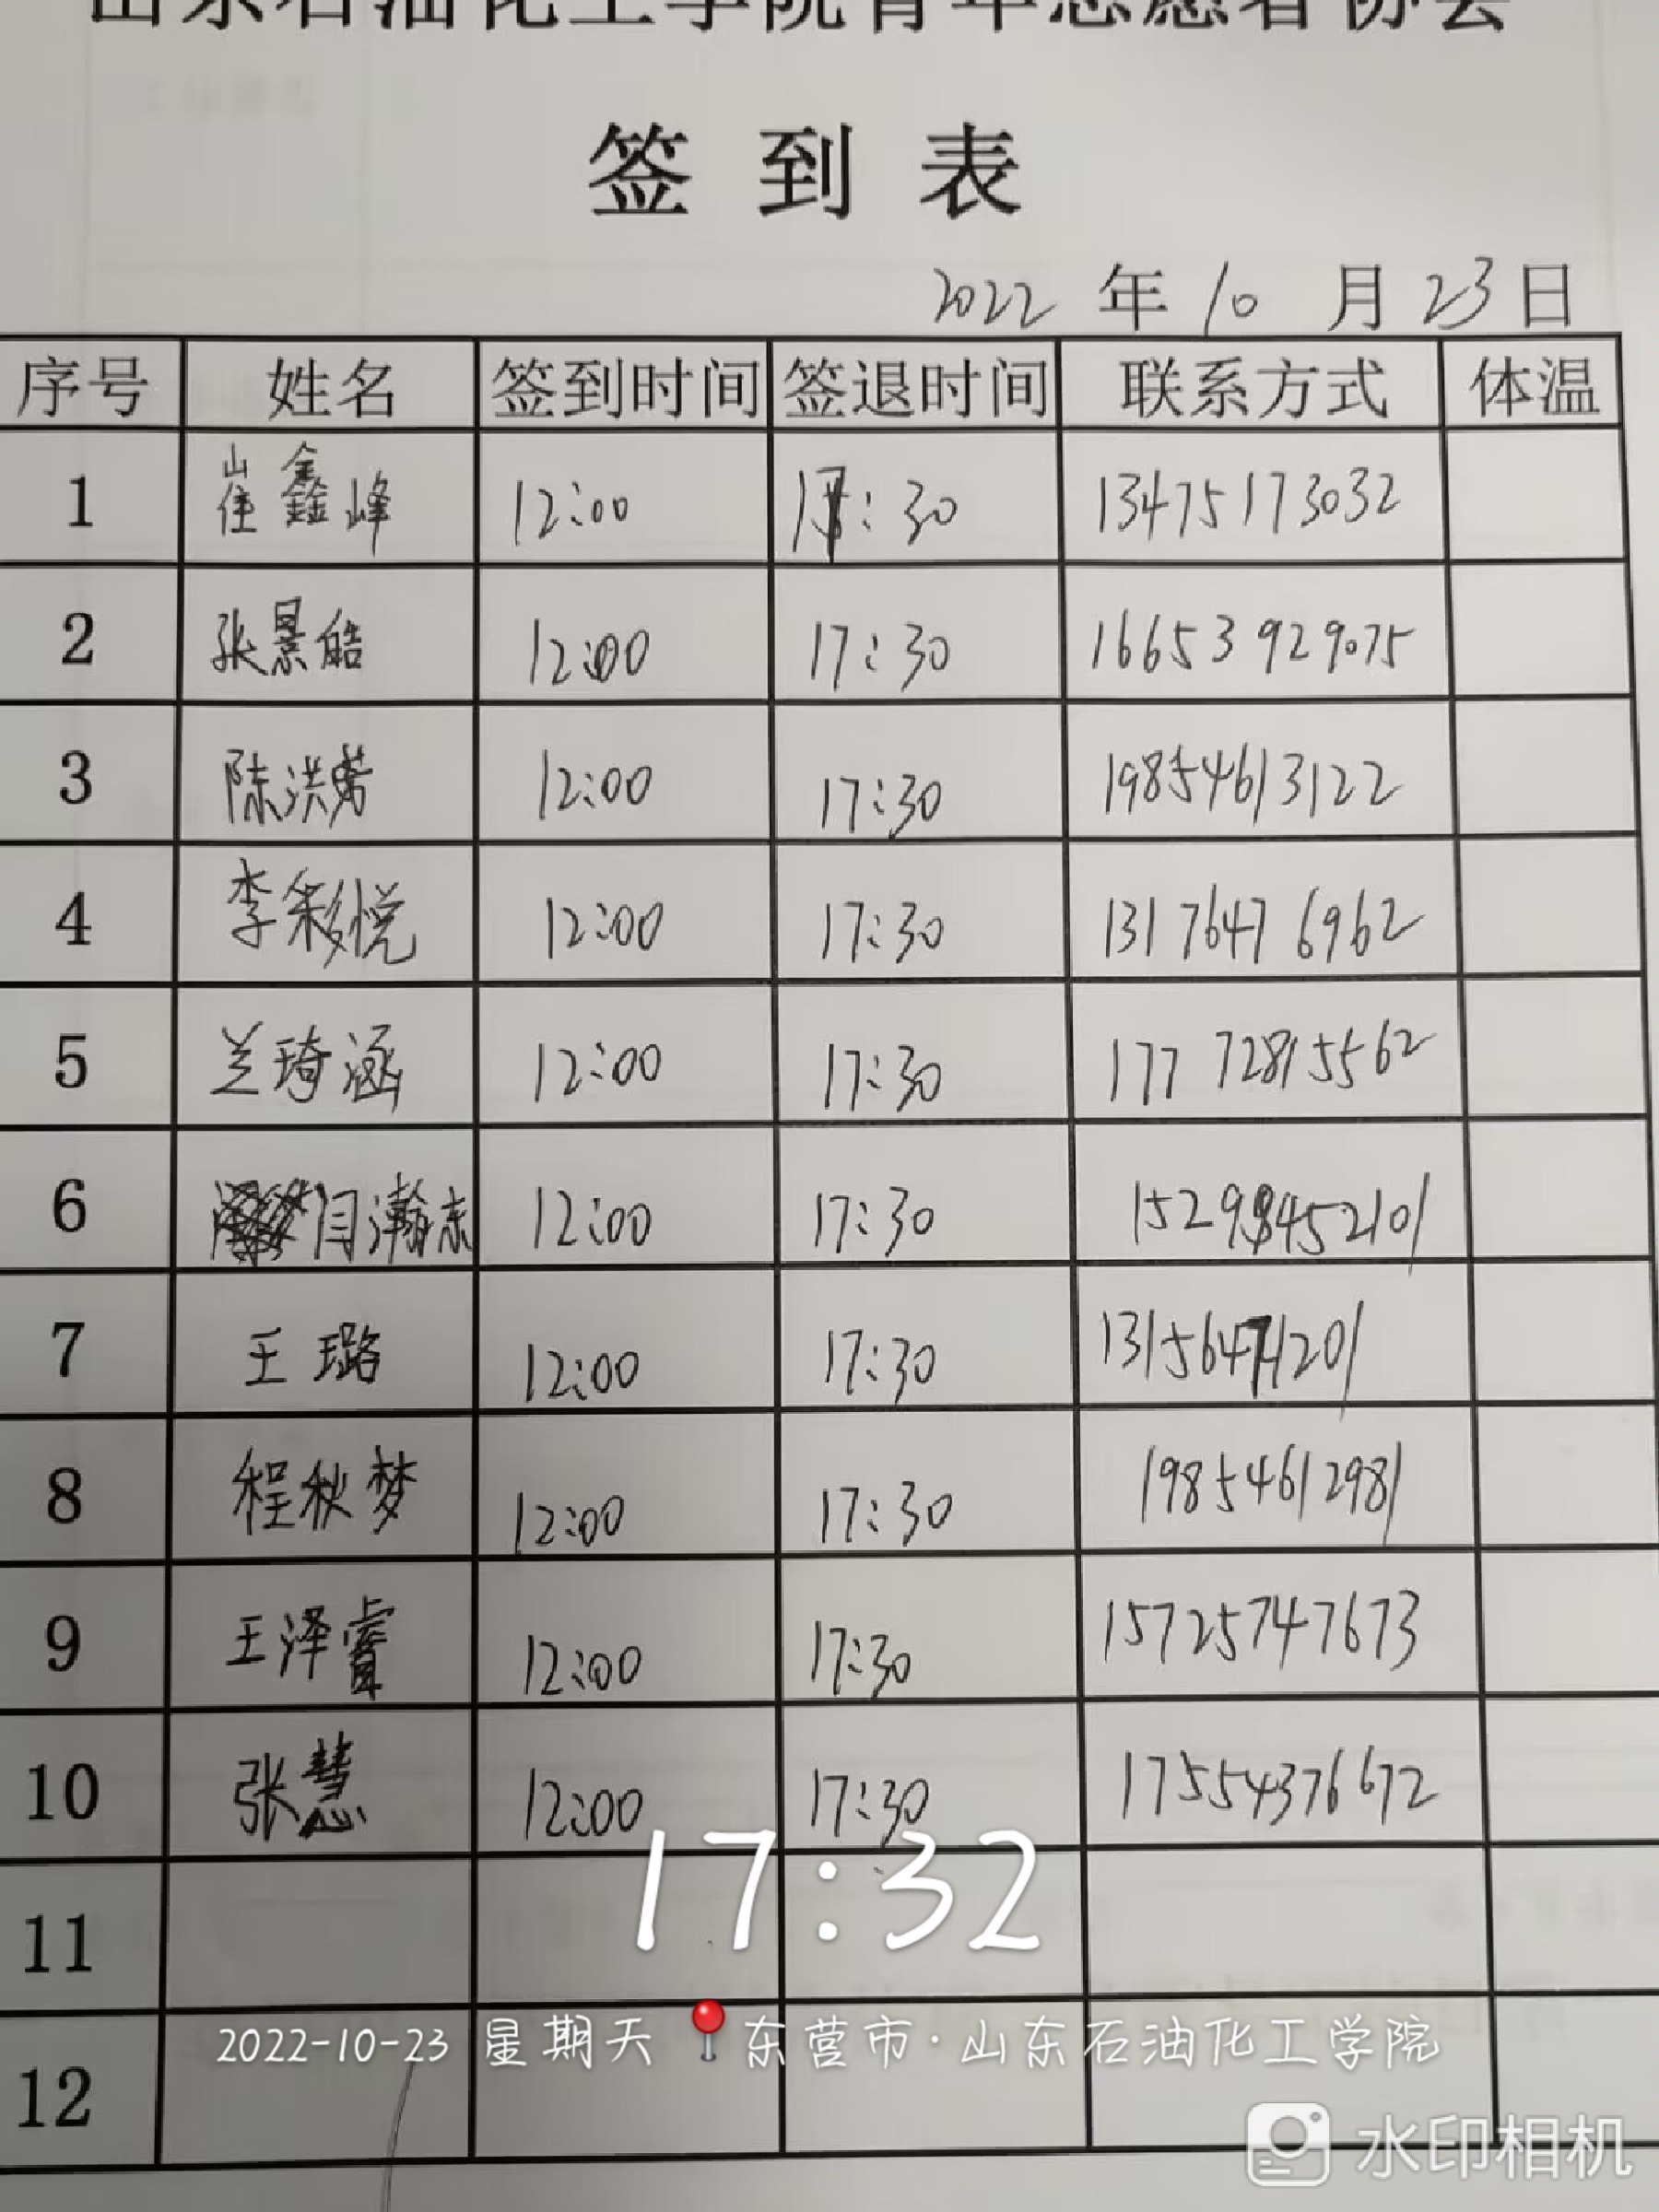 山东石油化工学院青年志愿者协会
签到表
2022 年 10 月 23 日
序号 姓名 签到时间 签退时间 联系方式 体温
1 崔鑫峰 12:00 17:30 13475173032
2 张景皓 12:00 17:30 16653929075
3 陈洪 12:00 17:30 19854613122
4 李彩悦 12:00 17:30 13176476962
5 兰琦涵 12:00 17:30 17772815562
6 闫瀚东 12:00 17:30 152998452101
7 王璐 12:00 17:30 13156471201
8 程秋梦 12:00 17:30 19854612981
9 王泽睿 12:00 17:30 15725747673
10 张慧 12:00 17:30 17554376672
17:32
11
2022-10-23 星期天 东营市·山东石油化工学院
12
水印相机